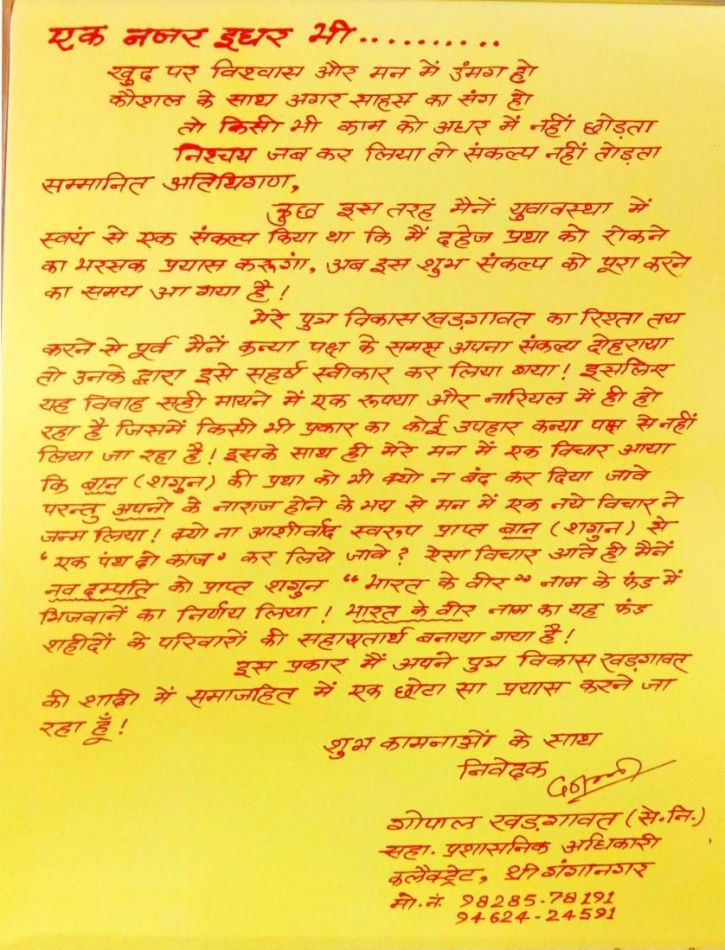 एक नजर इधर भी..........
खुद पर विश्वास और मन में उंमग हो
कौशल के साथ अगर साहस का संग हो
तो किसी भी काम को अधर में नहीं छोड़ता
निश्चय जब कर लिया तो संकल्प नहीं तोड़ता
सम्मानित अतिथिगण,
कुछ इस तरह मैनें युवावस्था में
स्वयं से एक संकल्प किया था कि मैं दहेज प्रथा को रोकने
का भरसक प्रयास करूगां, अब इस शुभ संकल्प को पूरा करने
का समय आ गया है!
मेरे पुत्र विकास खड़गावत का रिश्ता तय
करने से पूर्व मैनें कन्या पक्ष के समक्ष अपना संकल्प दोहराया
तो उनके द्वारा इसे सहर्ष स्वीकार कर लिया गया! इसलिए
यह विवाह सही मायने में एक रूपया और नारियल में ही हो
रहा है जिसमें किसी भी प्रकार का कोई उपहार कन्या पक्ष से नहीं
लिया जा रहा है! इसके साथ ही मेरे मन में एक विचार आया
कि बान (शगुन) की प्रथा को भी क्यो न बंद कर दिया जावे
परन्तु अपनो के नाराज होने के भय से मन में एक नये विचार ने
जन्म लिया! क्यो ना आशीर्वाद स्वरूप प्राप्त बान (शगुन) से
"एक पंथ दो काज" कर लिये जावे? ऐसा विचार आते ही मैनें
नव दम्पति को प्राप्त शगुन "भारत के वीर" नाम के फंड में
भिजवानें का निर्णय लिया! भारत के वीर नाम का यह फंड
शहीदों के परिवारों की सहायतार्थ बनाया गया है!
इस प्रकार मैं अपने पुत्र विकास खड़गावत
की शादी में समाजहित में एक छोटा सा प्रयास करने जा
रहा हूँ!
शुभ कामनाओं के साथ
निवेदक
गोपाल खड़गावत (से.नि.)
सहा. प्रशासनिक अधिकारी
कलैक्ट्रेट, श्री गंगानगर
मो.नं. 98285-78191
94624-24591